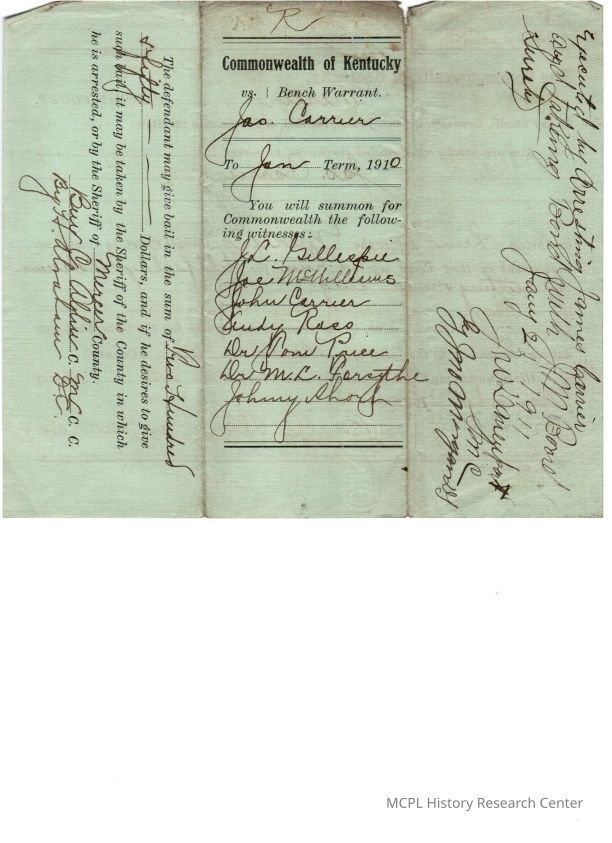 The defendant may give bail in the sum of Two Hundred
& fifty — — — Dollars, and if he desires to give
such bail, it may be taken by the Sheriff of the County in which
he is arrested, or by the Sheriff of Mercer County.
C. M. C. C.
By H. D.C.
R
Commonwealth of Kentucky
vs. } Bench Warrant.
Jas. Carrier
To Jan Term, 1910
You will summon for
Commonwealth the follow-
ing witnesses:
J.L. Gillespie
Joe McWilliams
John Carrier
Andy Ross
Dr Tom Price
Dr M.L. Forsythe
Johny Short
Executed by Arresting James Carrier
and taking Bond with H M Board
Surety
Jany 2 1911
J W
S M C
By
MCPL History Research Center